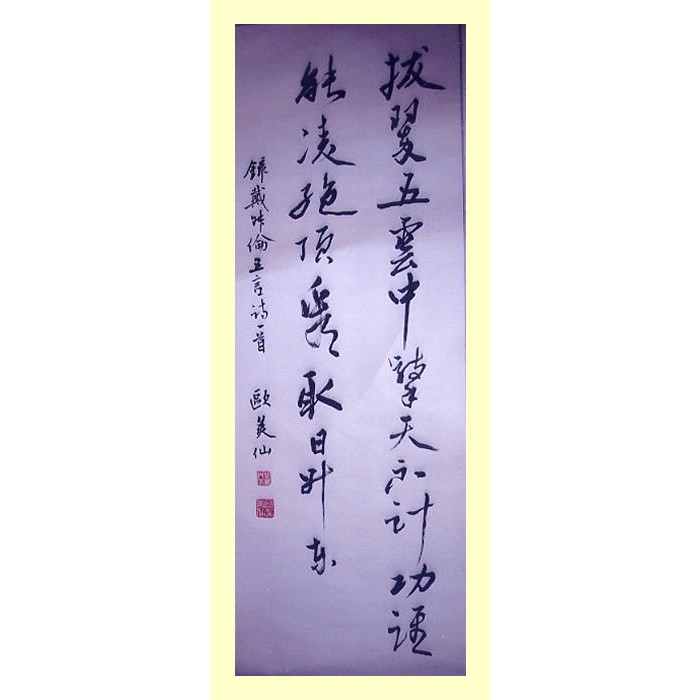 拔翠五雲中擎天不計功誰
能凌絶頂看取日升東
錄戴叔倫五言詩一首 歐美仙